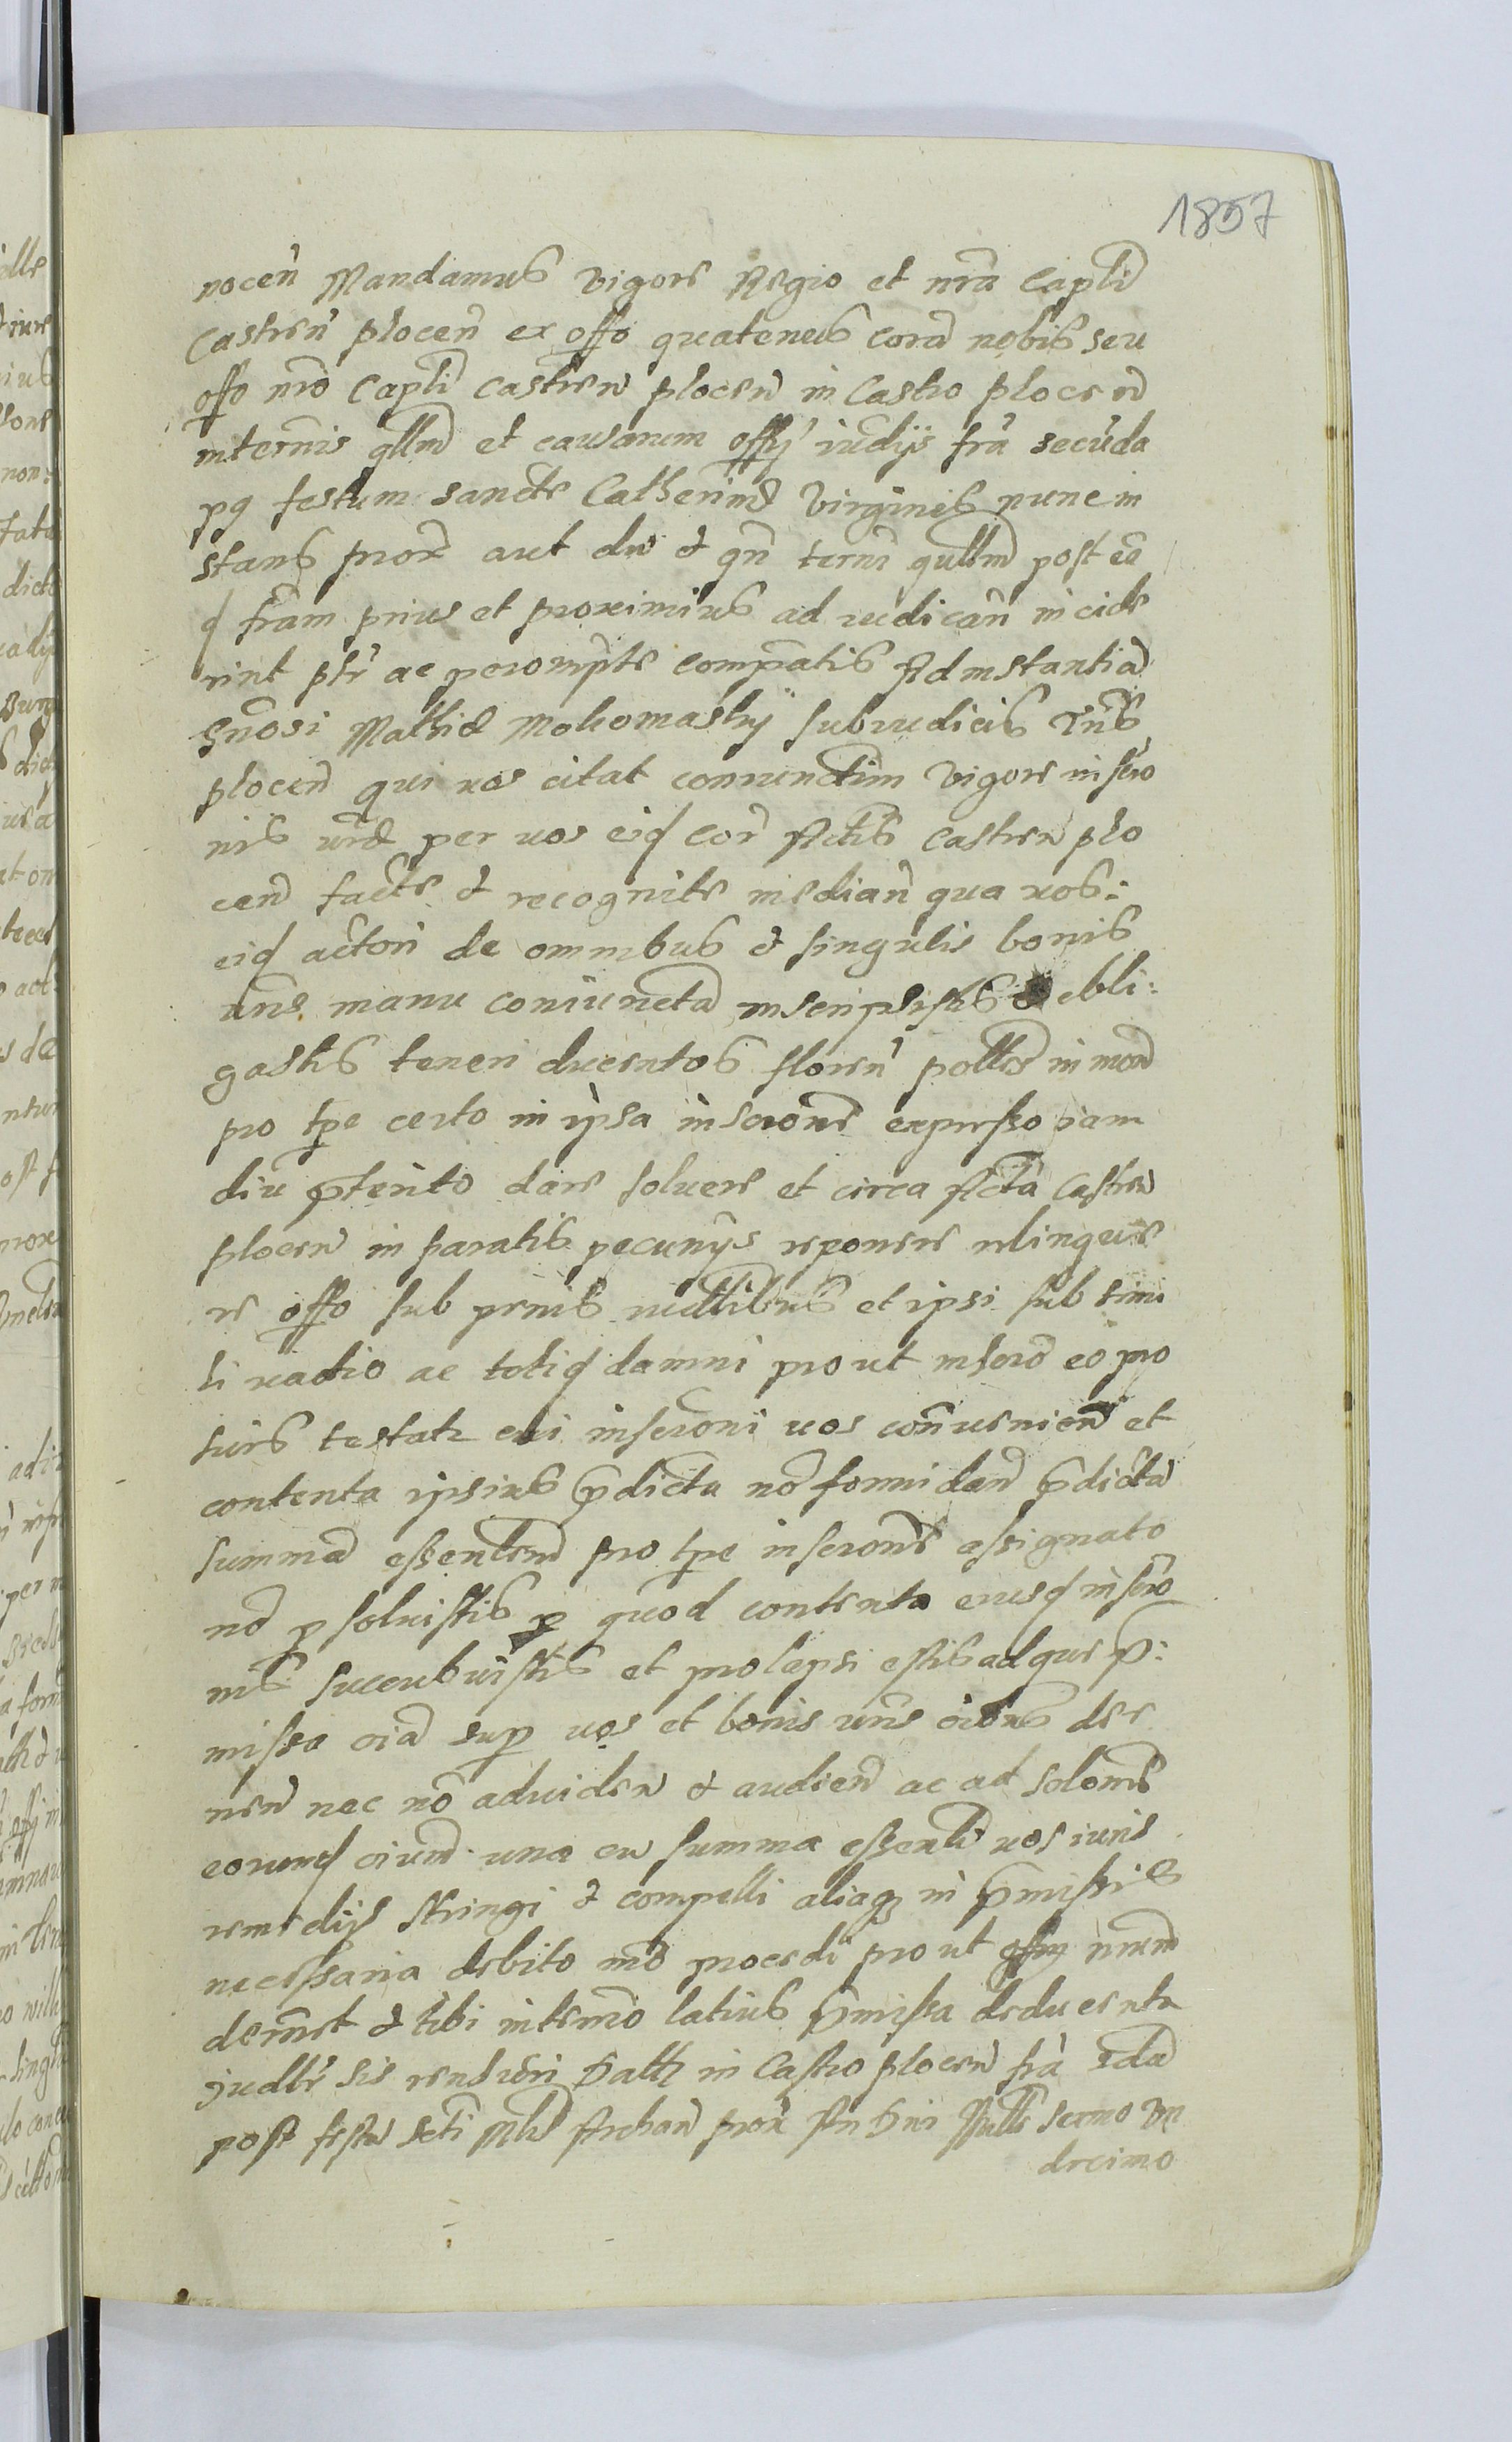 1857
nocen Mandamus vigore Regio et nra Capli
Castren plocen ex offo quatenus cora nobis seu
offo nro Capli Castren plocen in Castro plocen
in termis qllm et causarum offy iudiys fra secuda
pq festum sancte Catherine virginis nunc in
stans prox aut du & qn termi qullm post ea
d fram prius et proximius ad iudican incide
rint ptr ac perompte compatis Ad instantia
Gnosi Mathie Mokomasky subiudicis Trns
plocen qui vos citat coniunctim vigore inscro
nis vre per vos eid cor Actis Castren plo
cen facte & recognite median qua vos:
eid actori de omnibus & singulis bonis
vris manu coniuncta inscripsistis & obli:
gastis teneri ducentos floren pollis in mon
pro tpe certo in ipsa inscrone expresso iam
diu pterito dare soluere et circa Acta Castren
plocen in paratis pecunys reponere relinquere
re offo sub penis iudlibus et ipsi sub simi
li vadio ac totid damni prout inscro eo pro
suis testatr cui inscroni vos conuenien et
contenta ipsius pdicta no formidan pdicta
summa essenlem pro tpe inscrone assignato
no p soluistis p quod contenta eiusd inscro
nis sucubuistis et prolapsi estis ad que p:
missa oia sup vos et bonis vris oibus der
nen nec no aduiden & audien ac ad solone
eorund oium una cu summa essenli vos iuris
remediys stringi & compelli aliaq in pmissis
necessaria debito mo procedi prout offm nrum
demret & tibi in termo latius pmissa deducentr
iudlr sis rensuri Datt in Castro plocen fra 2da
post festu scti Mich Archan prox An Dni Mill sexmo vn
decimo